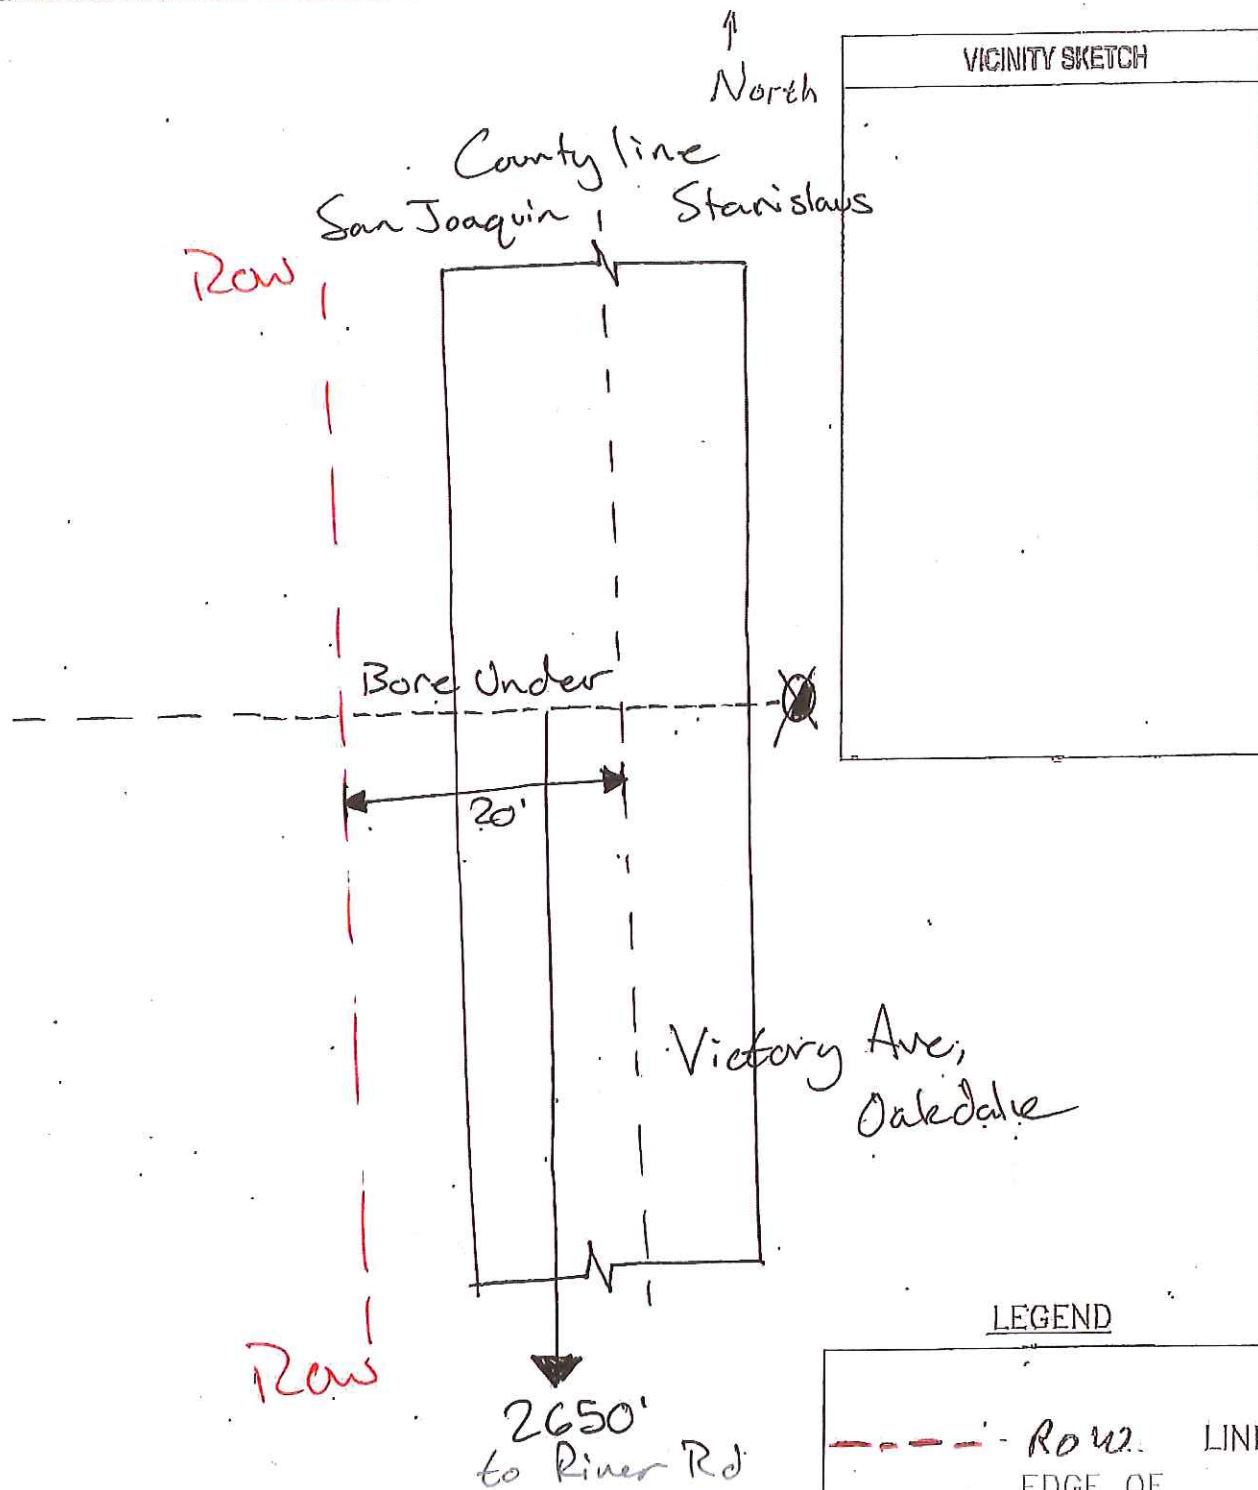 North
VICINITY SKETCH
County line
San Joaquin
Stanislaus
Row
Bore Under
20'
Victory Ave,
Oakdale
Row
2650'
to River Rd
LEGEND
ROW LIN
EDGE OF